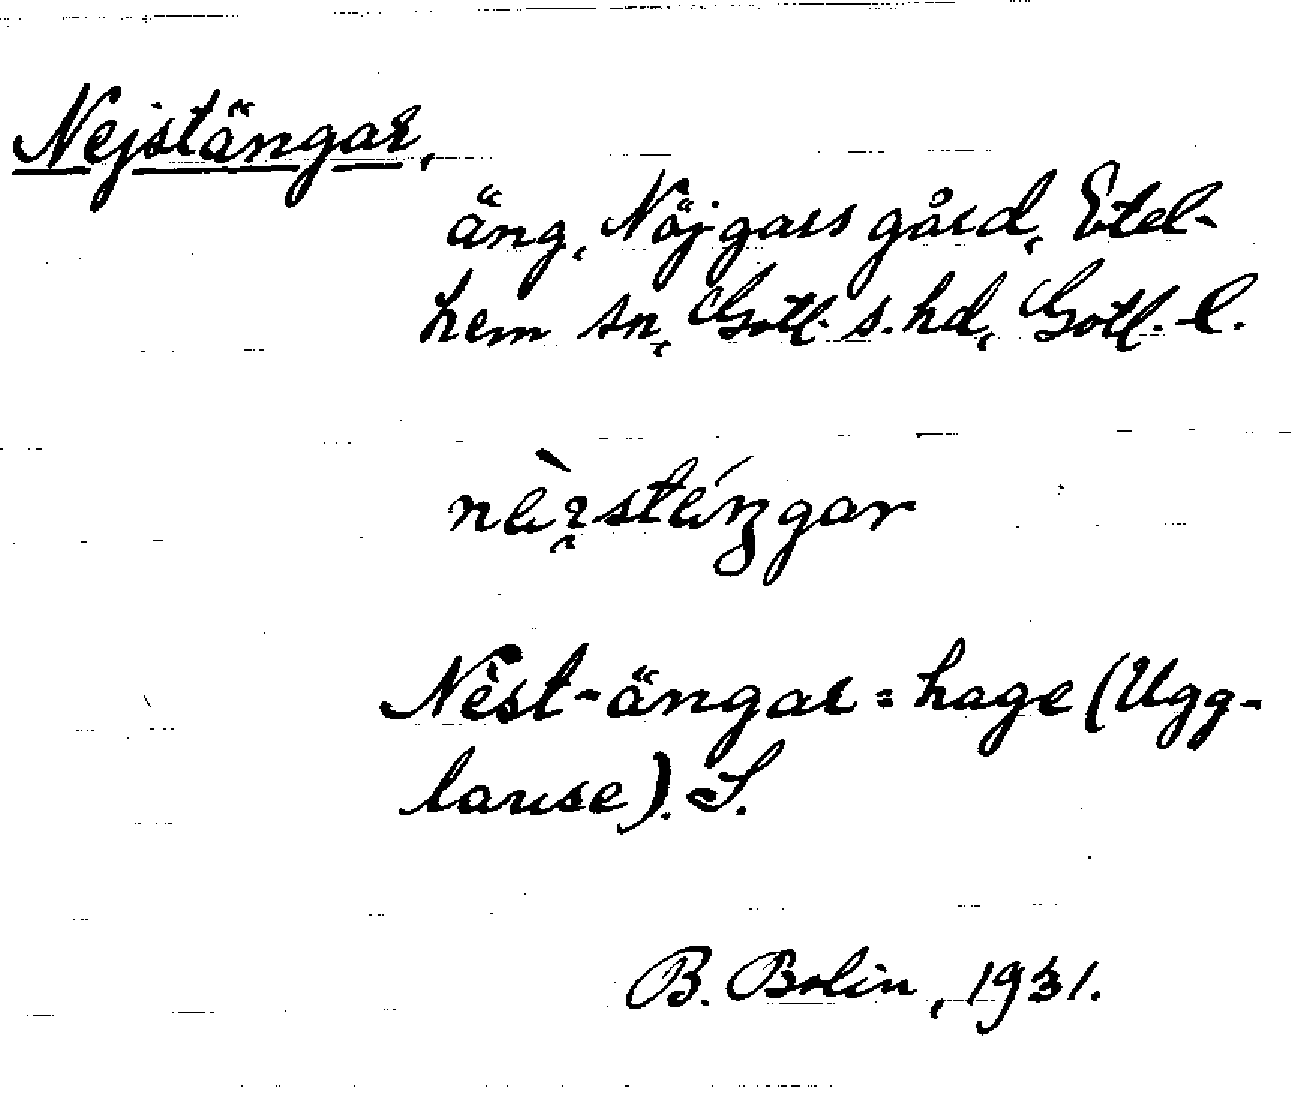 Nejstängar,
äng, Nöjgars gård, Etel-
hem sn, Gotl. s. hd, Gotl. l.
Nèst-ängar = hage (Ugg-
larse). S.
B. Bolin, 1931.